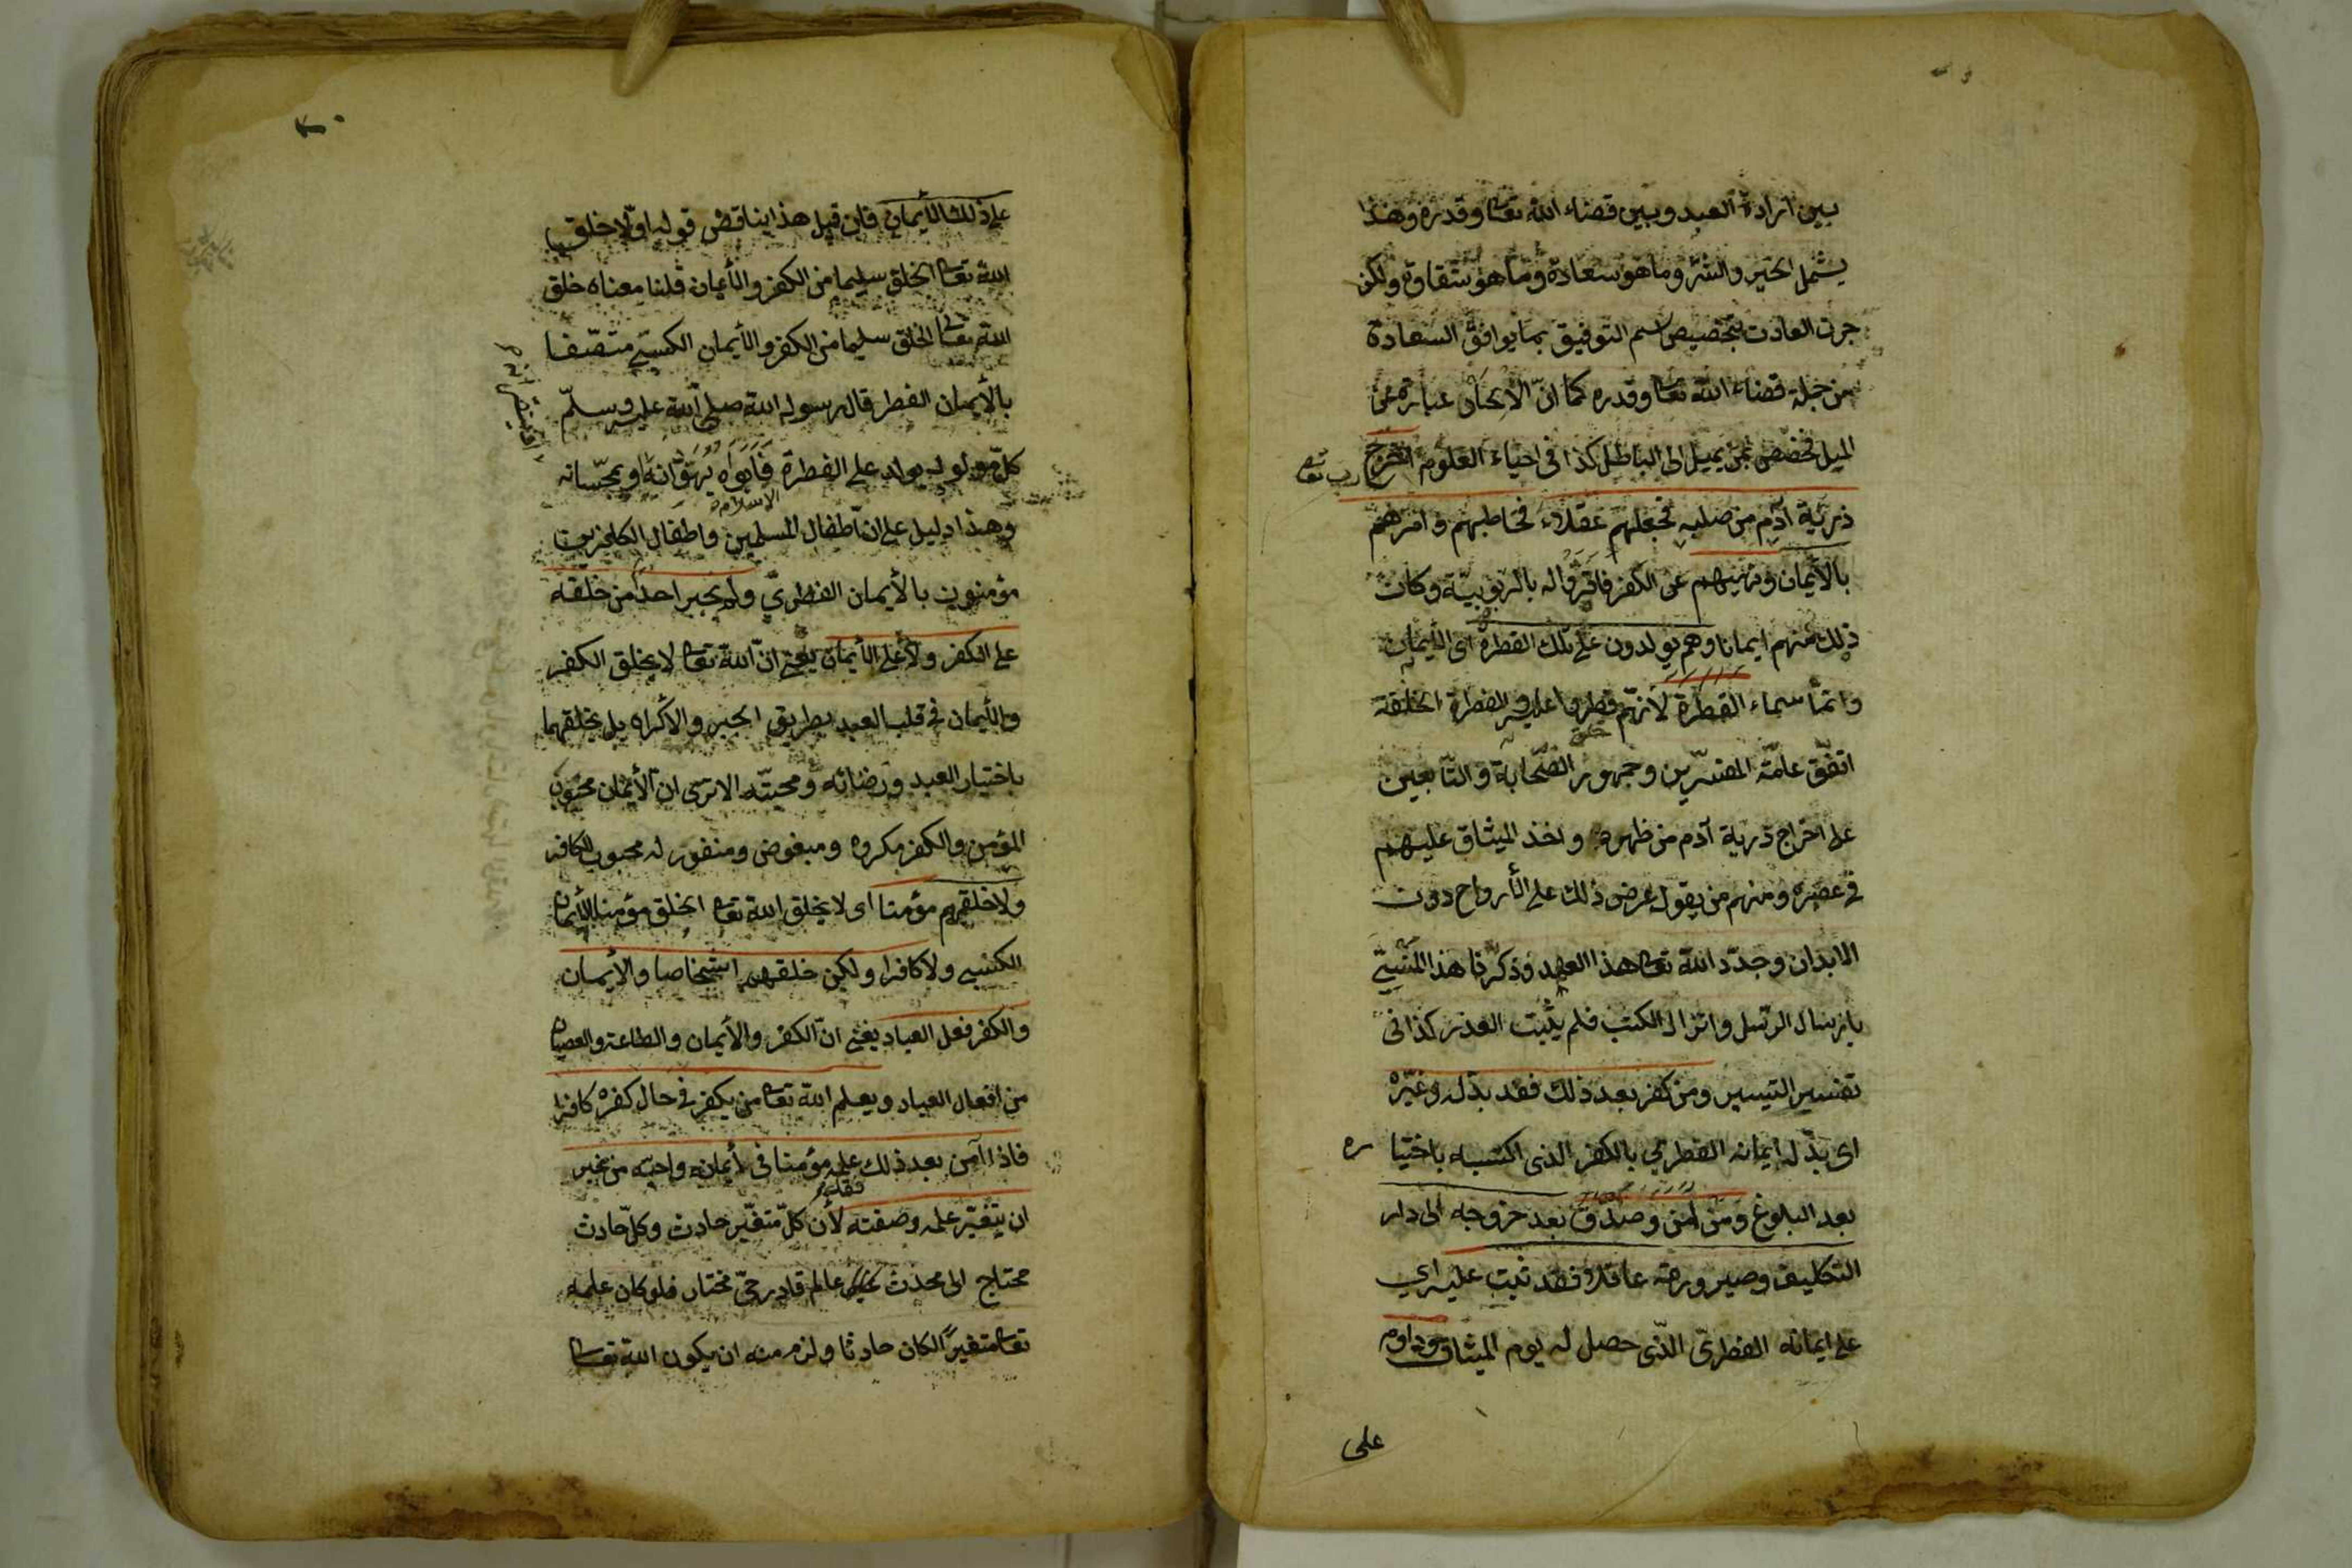 بين ارادة العبد وبين قضاء الله تعا وقدره وهذا
يشمل الخير والشر وما هو سعادة وما هو شقاوة ولكن
جرت العادت بتخصيص اسم التوفيق بما يوافق السعادة
من جملة قضاء الله تعا وقدره كما انّ الالحاد عبارة عن
الميل فخصص بمن يميل الى الباطل كذا فى احياء العلوم اخرج
ذرية آدم من صلبه فجعلهم عقلاء فخاطبهم وامرهم
بالأيمان ونهيهم عن الكفر فاقرّوا له بالربوبيّة وكان
ذلك منهم ايمانا وهم يولدون على تلك الفطرة اى الأيمان
وانما سماء الفطرة لأنهم فطروا عليه والفطرة الخلقة
اتفق عامّة المفسّرين وجمهور الصّحابة والتابعين
على اخراج ذرية آدم من ظهره واخذ الميثاق عليهم
في عصره ومنهم من يقول عرض ذلك على الأرواح دون
الابدان وجدّد الله تعا هذا العهد وذكّرنا هذا المنسيّ
بارسال الرسل وانزال الكتب فلم يثبت العذر كذا فى
تفسير التيسير ومن كفر بعد ذلك فقد بدّل وغيّره
اى بدّل ايمانه الفطري بالكفر الذى اكتسبه باختيا ره
بعد البلوغ ومن آمن وصدق بعد خروجه الى دار
التكليف وصيرورته عاقلا فقد ثبت عليه اي
على ايمانه الفطرى الذّى حصل له يوم الميثاق وداوم
على
على ذلك الأيمان فان قيل هذا يناقض قوله اوّلا خلق
الله تعا الخلق سليما من الكفر والأيمان قلنا معناه خلق
الله تعا الخلق سليما من الكفر والأيمان الكسبّي متصّفا
بالأيمان الفطر قال رسول الله صلى الله عليه وسلّم
كلّ مولود يولد على الفطرة فابواه يهوّدانه او يمجّسانه
الاسلام
وهذا دليل على ان اطفال المسلمين واطفال الكافرين
مؤمنون بالأيمان الفطريّ ولم يجبر احدا من خلقه
على الكفر ولا على الأيمان يعنى انّ الله تعا لا يخلق الكفر
والأيمان في قلب العبد بطريق الجبر والاكراه بل يخلقهما
باختيار العبد ورضائه ومحبّته الا ترى ان الأيمان محبوب
المؤمن والكفر مكروه ومبغوض ومنفور له محبوب للكافر
ولا خلقهم مؤمنا اى لا يخلق الله تعا الخلق مؤمنا بالأيمان
الكسبي ولا كافرا ولكن خلقهم اشخاصا والأيمان
والكفر فعل العباد يعنى انّ الكفر والأيمان والطاعة والعصيان
من افعال العباد ويعلم الله تعا من يكفر في حال كفره كافرا
فاذا آمن بعد ذلك علمه مؤمنا فى ايمانه واحبّه من غير
ان يتغيّر علمه وصفته لأن كلّ متغيّر حادث وكلّ حادث
محتاج الى محدث عالم قادر حيّ مختار فلو كان علمه
تعا متغيرًا لكان حادثا ولزم منه ان يكون الله تعا